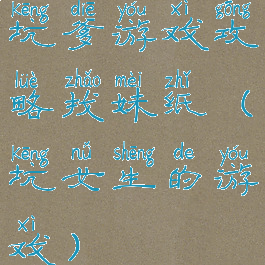 kēng diē yóu xì gōng
坑爹游戏攻
lüè zhǎo mèi zhǐ
略找妹纸（
kēng nǚ shēng de yóu
坑女生的游
xì
戏）